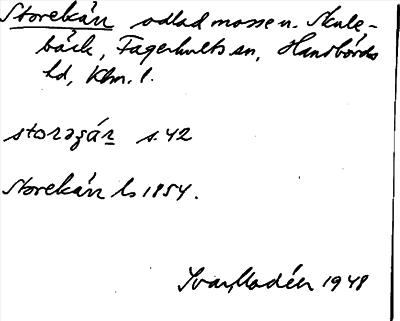 Storekàn odlad mosse n. Skule-
bäck, Fagerhults sn, Handbörds
hd, Klm. l.
storəgá̱r s. 42
Storekàn ls 1854.
Ivar Modéer 1948